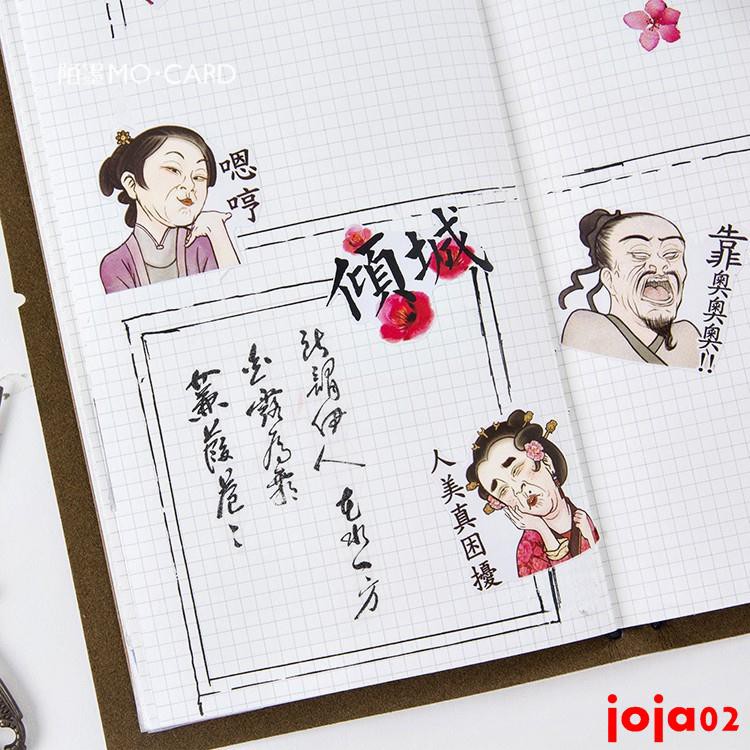 陌墨MO·CARD
嗯哼
傾城
靠奧奧奧!!
蒹葭蒼〻
白露為霜
所謂伊人 在水一方
人美真困擾
joja02